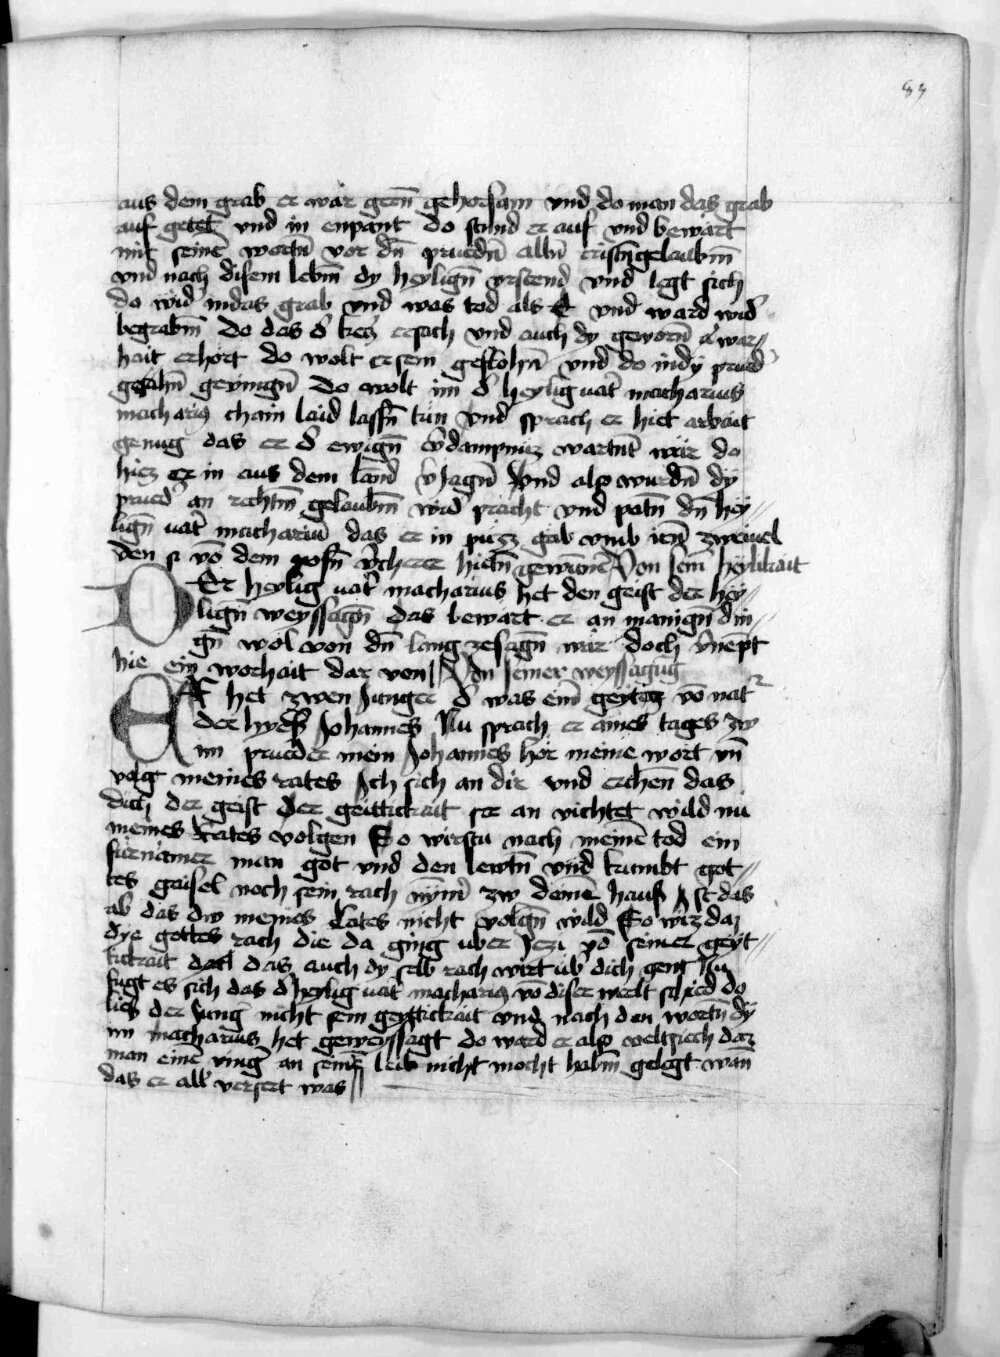 83
aus dem grab er wär gern̄ gehorsam vnd do man das grab
auf getet vnd in enpant do stund er auf vnd bewärt
mit seinē wortn̄ vor dn̄ pruedn̄ alln̄ cristn̄gelaubm̄
vnd nach disem lebm̄ dy heylign̄ vrstend vnd legt sich
do wid' indas grab vnd was tod als E vnd ward wid'
begrabm̄ Do das d' kecz ersach vnd auch dy geworn̄ a' war//
hait erhort do wolt er sein geflohn̄ vnd do in dy prued'
gefahn̄ geyingn̄ Do wolt im d' heylig uat' macharius
macharig chain laid lassn̄ tun vnd sprach er hiet arbait
genug das er d' ewign̄ v'dampnüz wartnt wär do
hiez er in aus dem land v'Jagn̄ Vnd also wurdn̄ dy
prued' an rechtm̄ gelaubm̄ wid' pracht vnd patn̄ dn̄ hey//
lign̄ uat' macharium das er in puezz gäb vmb ien̄ zweiuel
den si vō dem posn̄ v'cherer hietn̄ gewunnē Von seīn heylikait
DEr heylig uat' macharius het den geist der hey//
lign̄ weyssagn̄ das bewärt er an manign̄ din//
gn̄ wol von dn̄ lang zesagn̄ wär doch v'nēpt
hie ein worhait dar von Von seiner weyssagūg
ER het zwen Junger d' was ein̄ geytig vō nat'
der hyess Johannes Nu sprach er aines tages zw
im prueder mein Johannes hör meine wort vn̄
volg meines rates Ich sich an dir vnd erchen das
dich der geist der geittickait ser an vichtet wild nu
meines Rates volgen So wirstu nach meinē tod ein
fürnämer man got vnd den lewtn̄ vnd kumbt got//
tes gaisel noch sein rach nȳm̄ zw deinē haus Ist das
ab das dw meines Rates nicht volgn̄ wild So wiz daz
dye gottes rach die da ging uber Jezi vō seiner geyt//
tickait das auch dy selb rach wirt üb' dich gent Nu
fugt es sich das d' heylig uat' macharig vō diser werlt schied do
lies der Jung nicht sein geyttickait vnd nach den wortn̄ dy
im macharius het geweyssagt do ward er also veltsiech daz
man einē ving' an seinē leib nicht mocht habm̄ gelegt wan̄
das er all' versert was